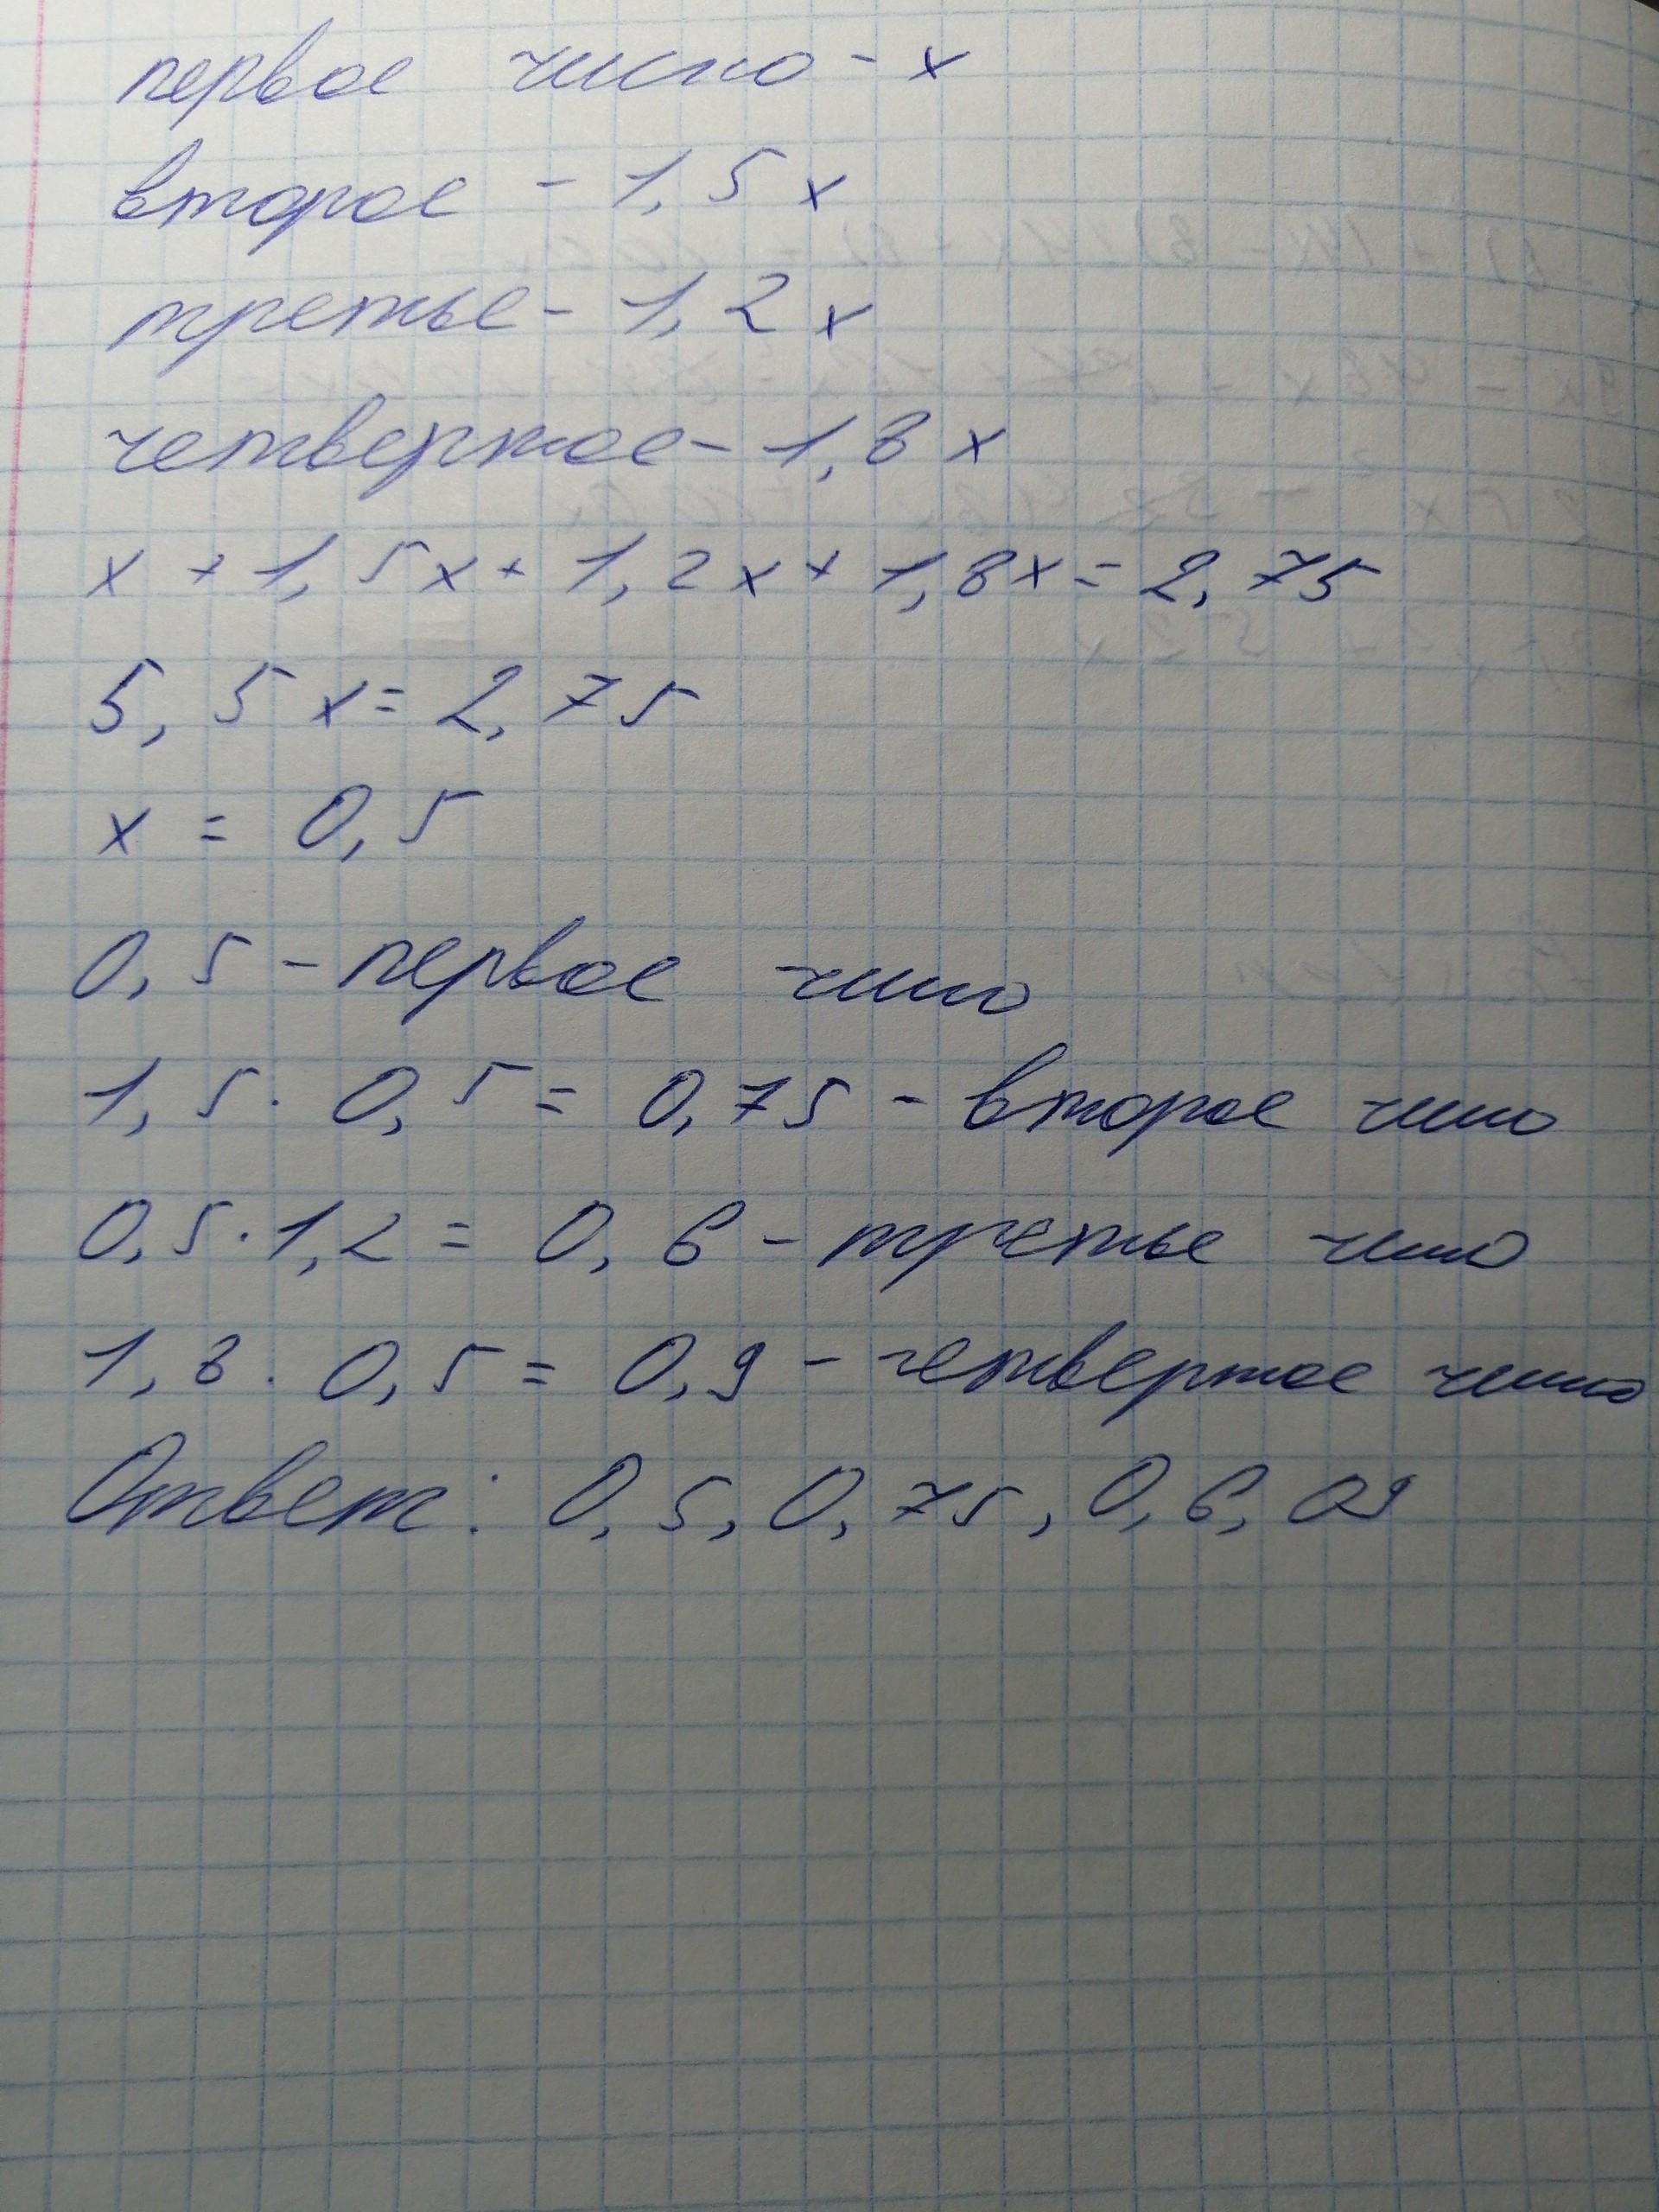 первое число - x
второе - 1,5x
третье - 1,2x
четвертое - 1,8x
x + 1,5x + 1,2x + 1,8x = 2,75
5,5x = 2,75
x = 0,5
0,5 - первое число
1,5 · 0,5 = 0,75 - второе число
0,5 · 1,2 = 0,6 - третье число
1,8 · 0,5 = 0,9 - четвертое число
Ответ: 0,5, 0,75, 0,6, 09